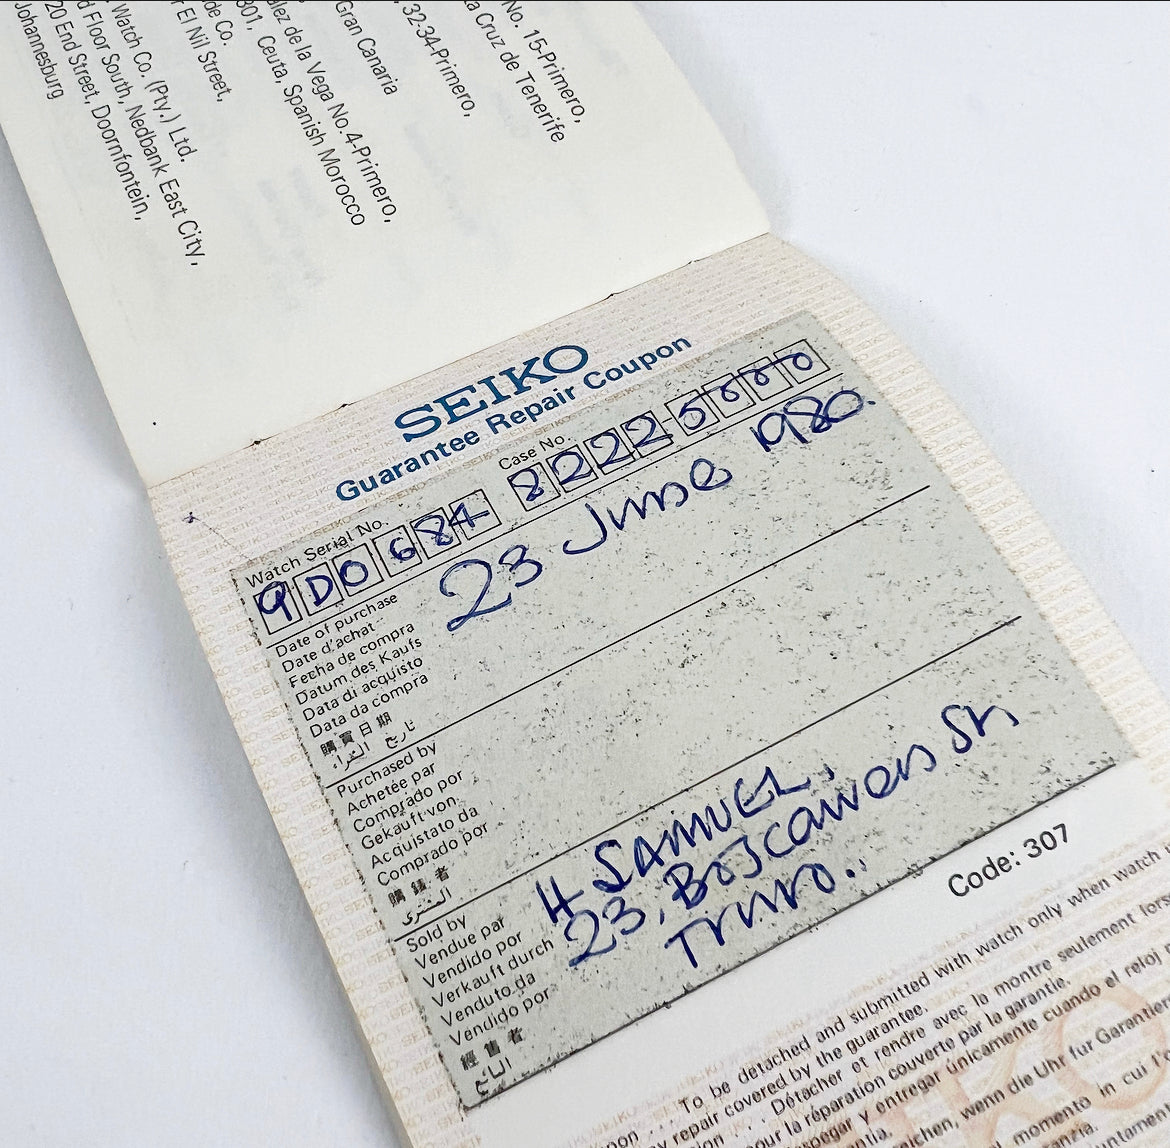 No. 15-Primero,
Cruz de Tenerife
32-34-Primero,
Gran Canaria
de la Vega No. 4-Primero,
Ceuta, Spanish Morocco
de Co.
El Nil Street,
Watch Co. (Pty.) Ltd.
Floor South, Nedbank East City,
20 End Street, Doornfontein,
Johannesburg
SEIKO
Guarantee Repair Coupon
Watch Serial No.
Case No.
9D0684
8222 5000
Date of purchase
Date d'achat
Fecha de compra
Datum des Kaufs
Data di acquisto
Data da compra
購買日期
تاريخ الشراء
23 June 1980.
Purchased by
Achetée par
Comprado por
Gekauft von
Acquistato da
Comprado por
購買者
المشتري
Sold by
Vendue par
Vendido por
Verkauft durch
Venduto da
Vendido por
經售者
البائع
H SAMUEL,
23, Boscawen St.
Truro..
Code: 307
To be detached and submitted with watch only when watch
repair covered by the guarantee.
Détacher et rendre avec la montre seulement
pour la réparation couverte par la garantie.
entregar únicamente cuando el reloj
wenn die Uhr für
momento in cui